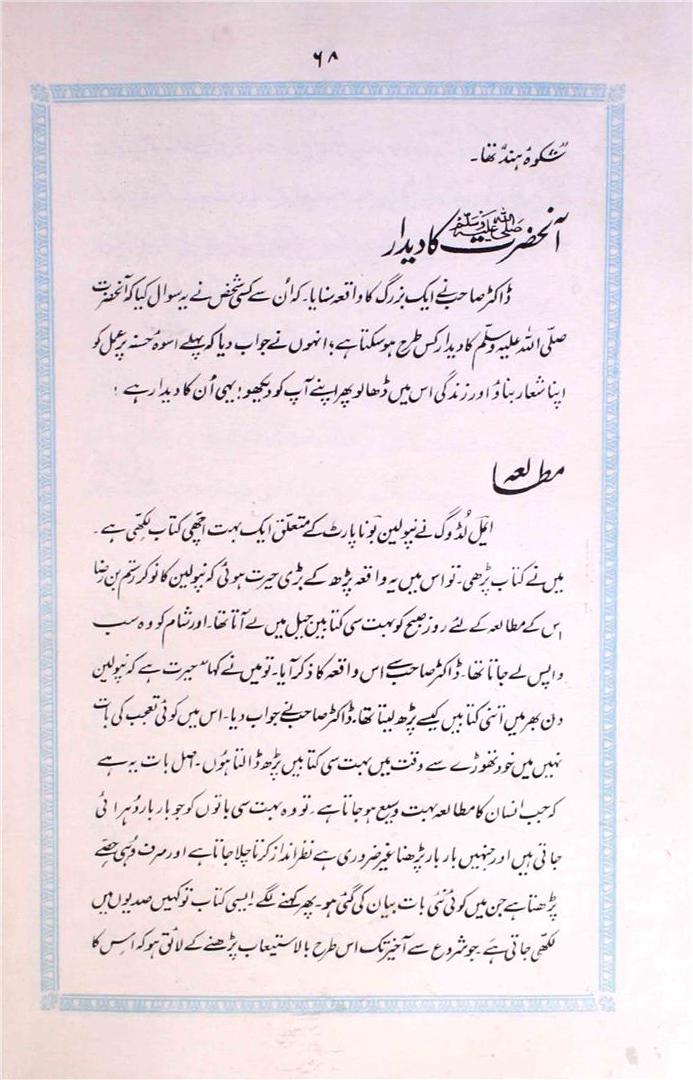 ۶۸
شکوۂ ہند تھا۔
آنحضرت صلی اللہ علیہ وسلم کا دیدار
ڈاکٹر صاحب نے ایک بزرگ کا واقعہ سنایا۔ کہ اُن سے کسی شخص نے یہ سوال کیا کہ آنحضرت
صلی اللہ علیہ وسلم کا دیدار کس طرح ہو سکتا ہے؛ انہوں نے جواب دیا کہ پہلے اسوۂ حسنہ پر عمل کو
اپنا شعار بناؤ اور زندگی اس میں ڈھالو پھر اپنے آپ کو دیکھو! یہی اُن کا دیدار ہے!
مطالعہ
ایمل لُڈوگ نے نپولین بونا پارٹ کے متعلق ایک بہت اچھی کتاب لکھی ہے۔
میں نے کتاب پڑھی۔ تو اس میں یہ واقعہ پڑھ کے بڑی حیرت ہوئی کہ نپولین کا نوکر رستم بن رضا
اس کے مطالعہ کے لئے روز صبح کو بہت سی کتابیں جیل میں لے آتا تھا۔ اور شام کو وہ سب
واپس لے جاتا تھا۔ ڈاکٹر صاحب سے اس واقعہ کا ذکر آیا۔ تو میں نے کہا "حیرت ہے کہ نپولین
دن بھر میں اتنی کتابیں کیسے پڑھ لیتا تھا۔ ڈاکٹر صاحب نے جواب دیا۔ اس میں کوئی تعجب کی بات
نہیں میں خود تھوڑے سے وقت میں بہت سی کتابیں پڑھ ڈالتا ہوں۔ اصل بات یہ ہے
کہ جب انسان کا مطالعہ بہت وسیع ہو جاتا ہے۔ تو وہ بہت سی باتوں کو جو بار بار دُہرائی
جاتی ہیں اور جنہیں بار بار پڑھنا غیر ضروری ہے نظر انداز کرتا چلا جاتا ہے اور صرف وہی حصے
پڑھتا ہے جن میں کوئی نئی بات بیان کی گئی ہو۔ پھر کہنے لگے ایسی کتاب تو کہیں صدیوں میں
لکھی جاتی ہے۔ جو شروع سے آخیر تک اس طرح بالاستیعاب پڑھنے کے لائق ہو کہ اس کا